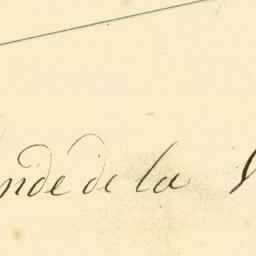 nde de la